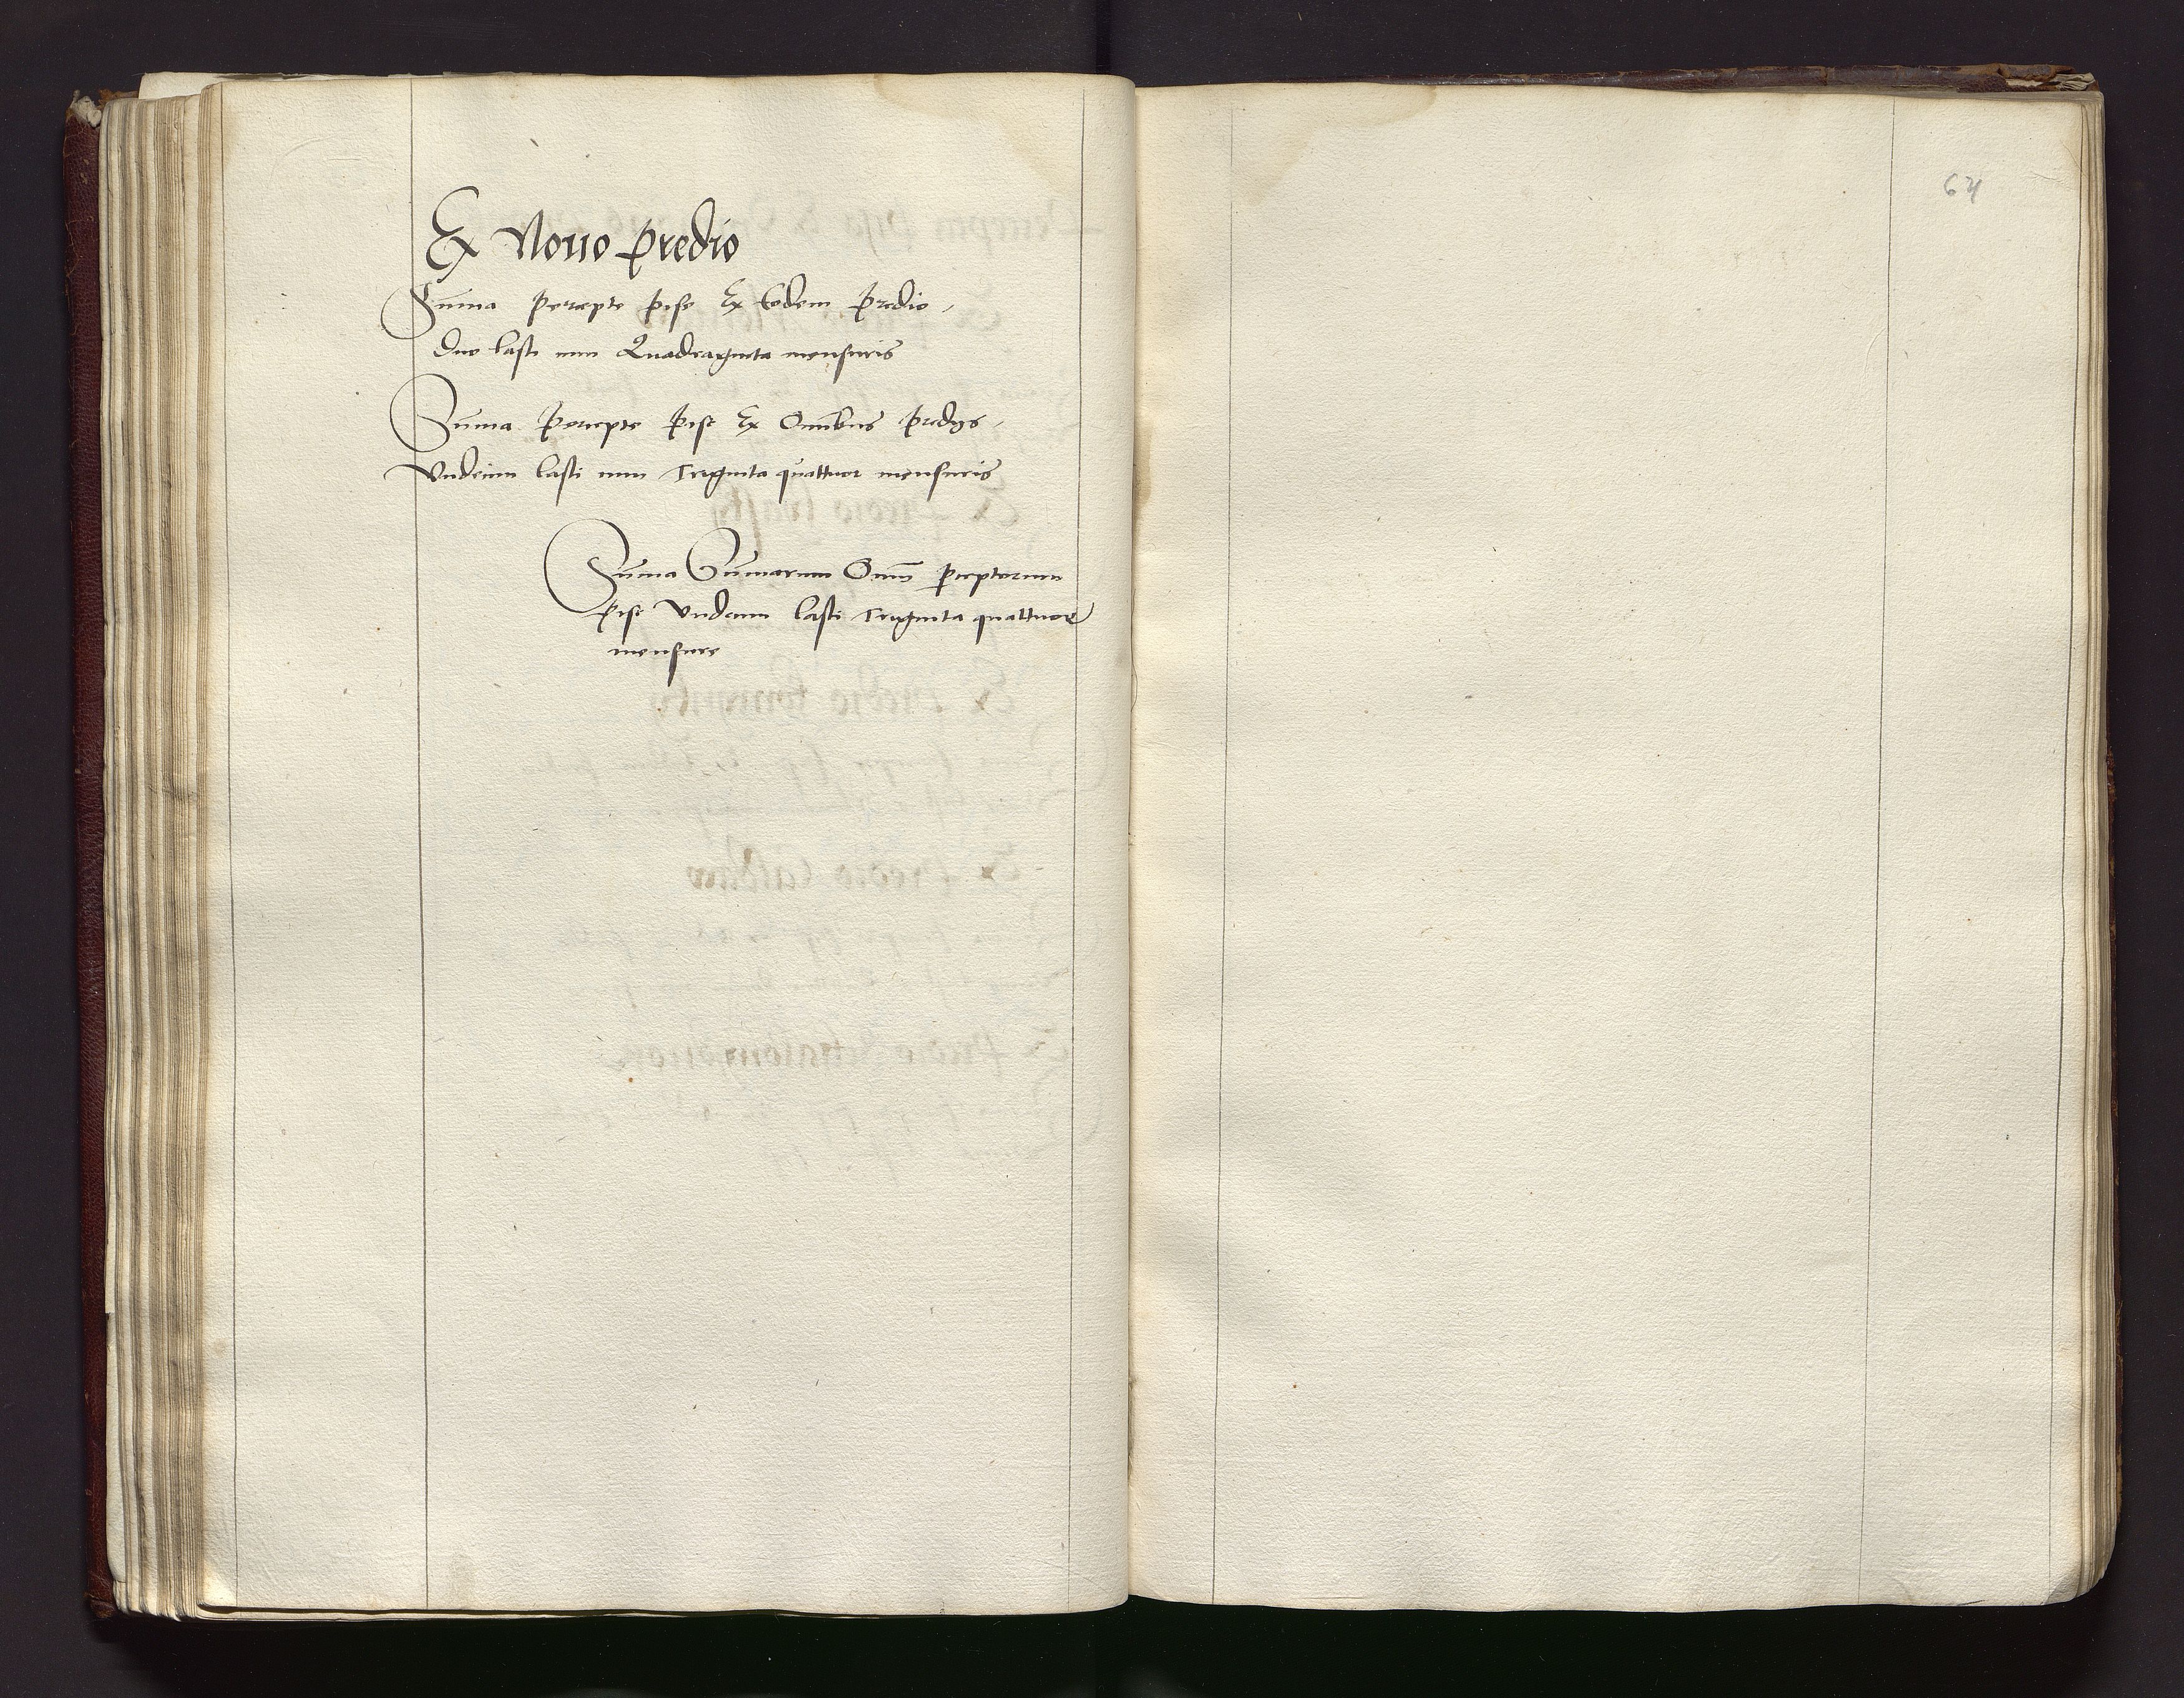 Ex Nouo predio
Suma Percepte Pise Ex Eodem Predio
Duo lasti cum Quadraginta mensuris
Suma Percepte Pise Ex Omibus Predys
Vndecim lasti cum Triginta quattuor mensuris
Suma Sumarum Omm perceptorum
Pise Vndecim lasti Triginta quattuor
mensure
64